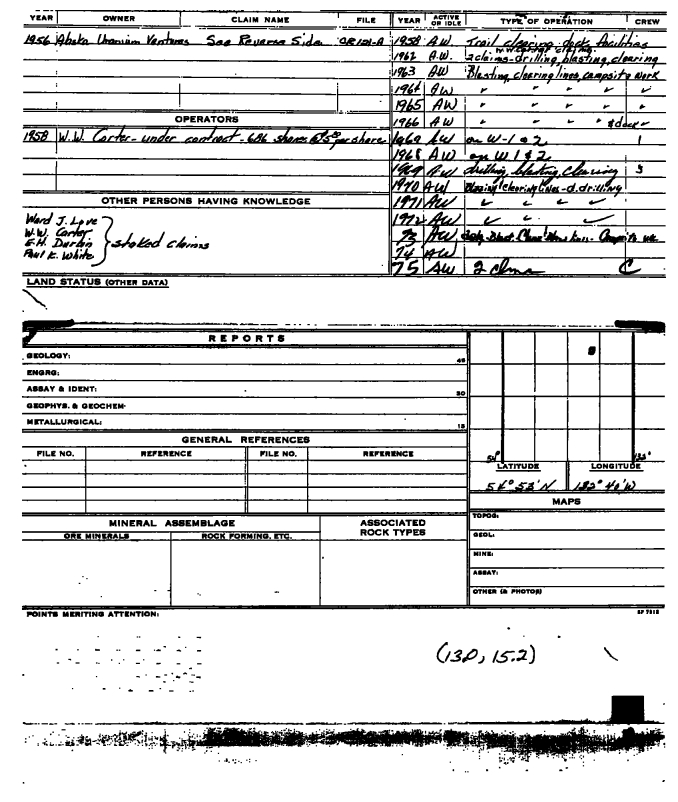 YEAR OWNER CLAIM NAME FILE YEAR ACTIVE OR IDLE TYPE OF OPERATION CREW
1956 Uranium Ventures See Reverse Side 1958 A.W. Trail clearing, dock facilities
W.W. Carter
1962 A.W. 2 claims - drilling, blasting, clearing
1963 AW Blasting, clearing lines, campsite work
1964 AW " " " "
1965 AW " " " "
OPERATORS 1966 AW " " " " & dock "
1958 W.W. Carter - under contract - 686 shares per share AW on W-1 & 2 1
1968 AW on W 1 & 2
1969 AW drilling, blasting, clearing 3
1970 AW Blazing, clearing lines - d. drilling
OTHER PERSONS HAVING KNOWLEDGE 1971 AW " " " "
Ward J. Love 1972 AW " " "
W.W. Carter
E.H. Durbin staked claims 73 AW
Paul K. White 74 AW
75 AW 2 clms C
LAND STATUS (OTHER DATA)
REPORTS
GEOLOGY: 45
ENGRG:
ASSAY & IDENT: 30
GEOPHYS. & GEOCHEM-
METALLURGICAL: 15
GENERAL REFERENCES
FILE NO. REFERENCE FILE NO. REFERENCE 54° 132°
LATITUDE LONGITUDE
54° 53' N 132° 40' W
MAPS
MINERAL ASSEMBLAGE ASSOCIATED ROCK TYPES TOPOG:
ORE MINERALS ROCK FORMING, ETC. GEOL:
MINE:
ASSAY:
OTHER (& PHOTOS)
POINTS MERITING ATTENTION:
(13.0, 15.2)